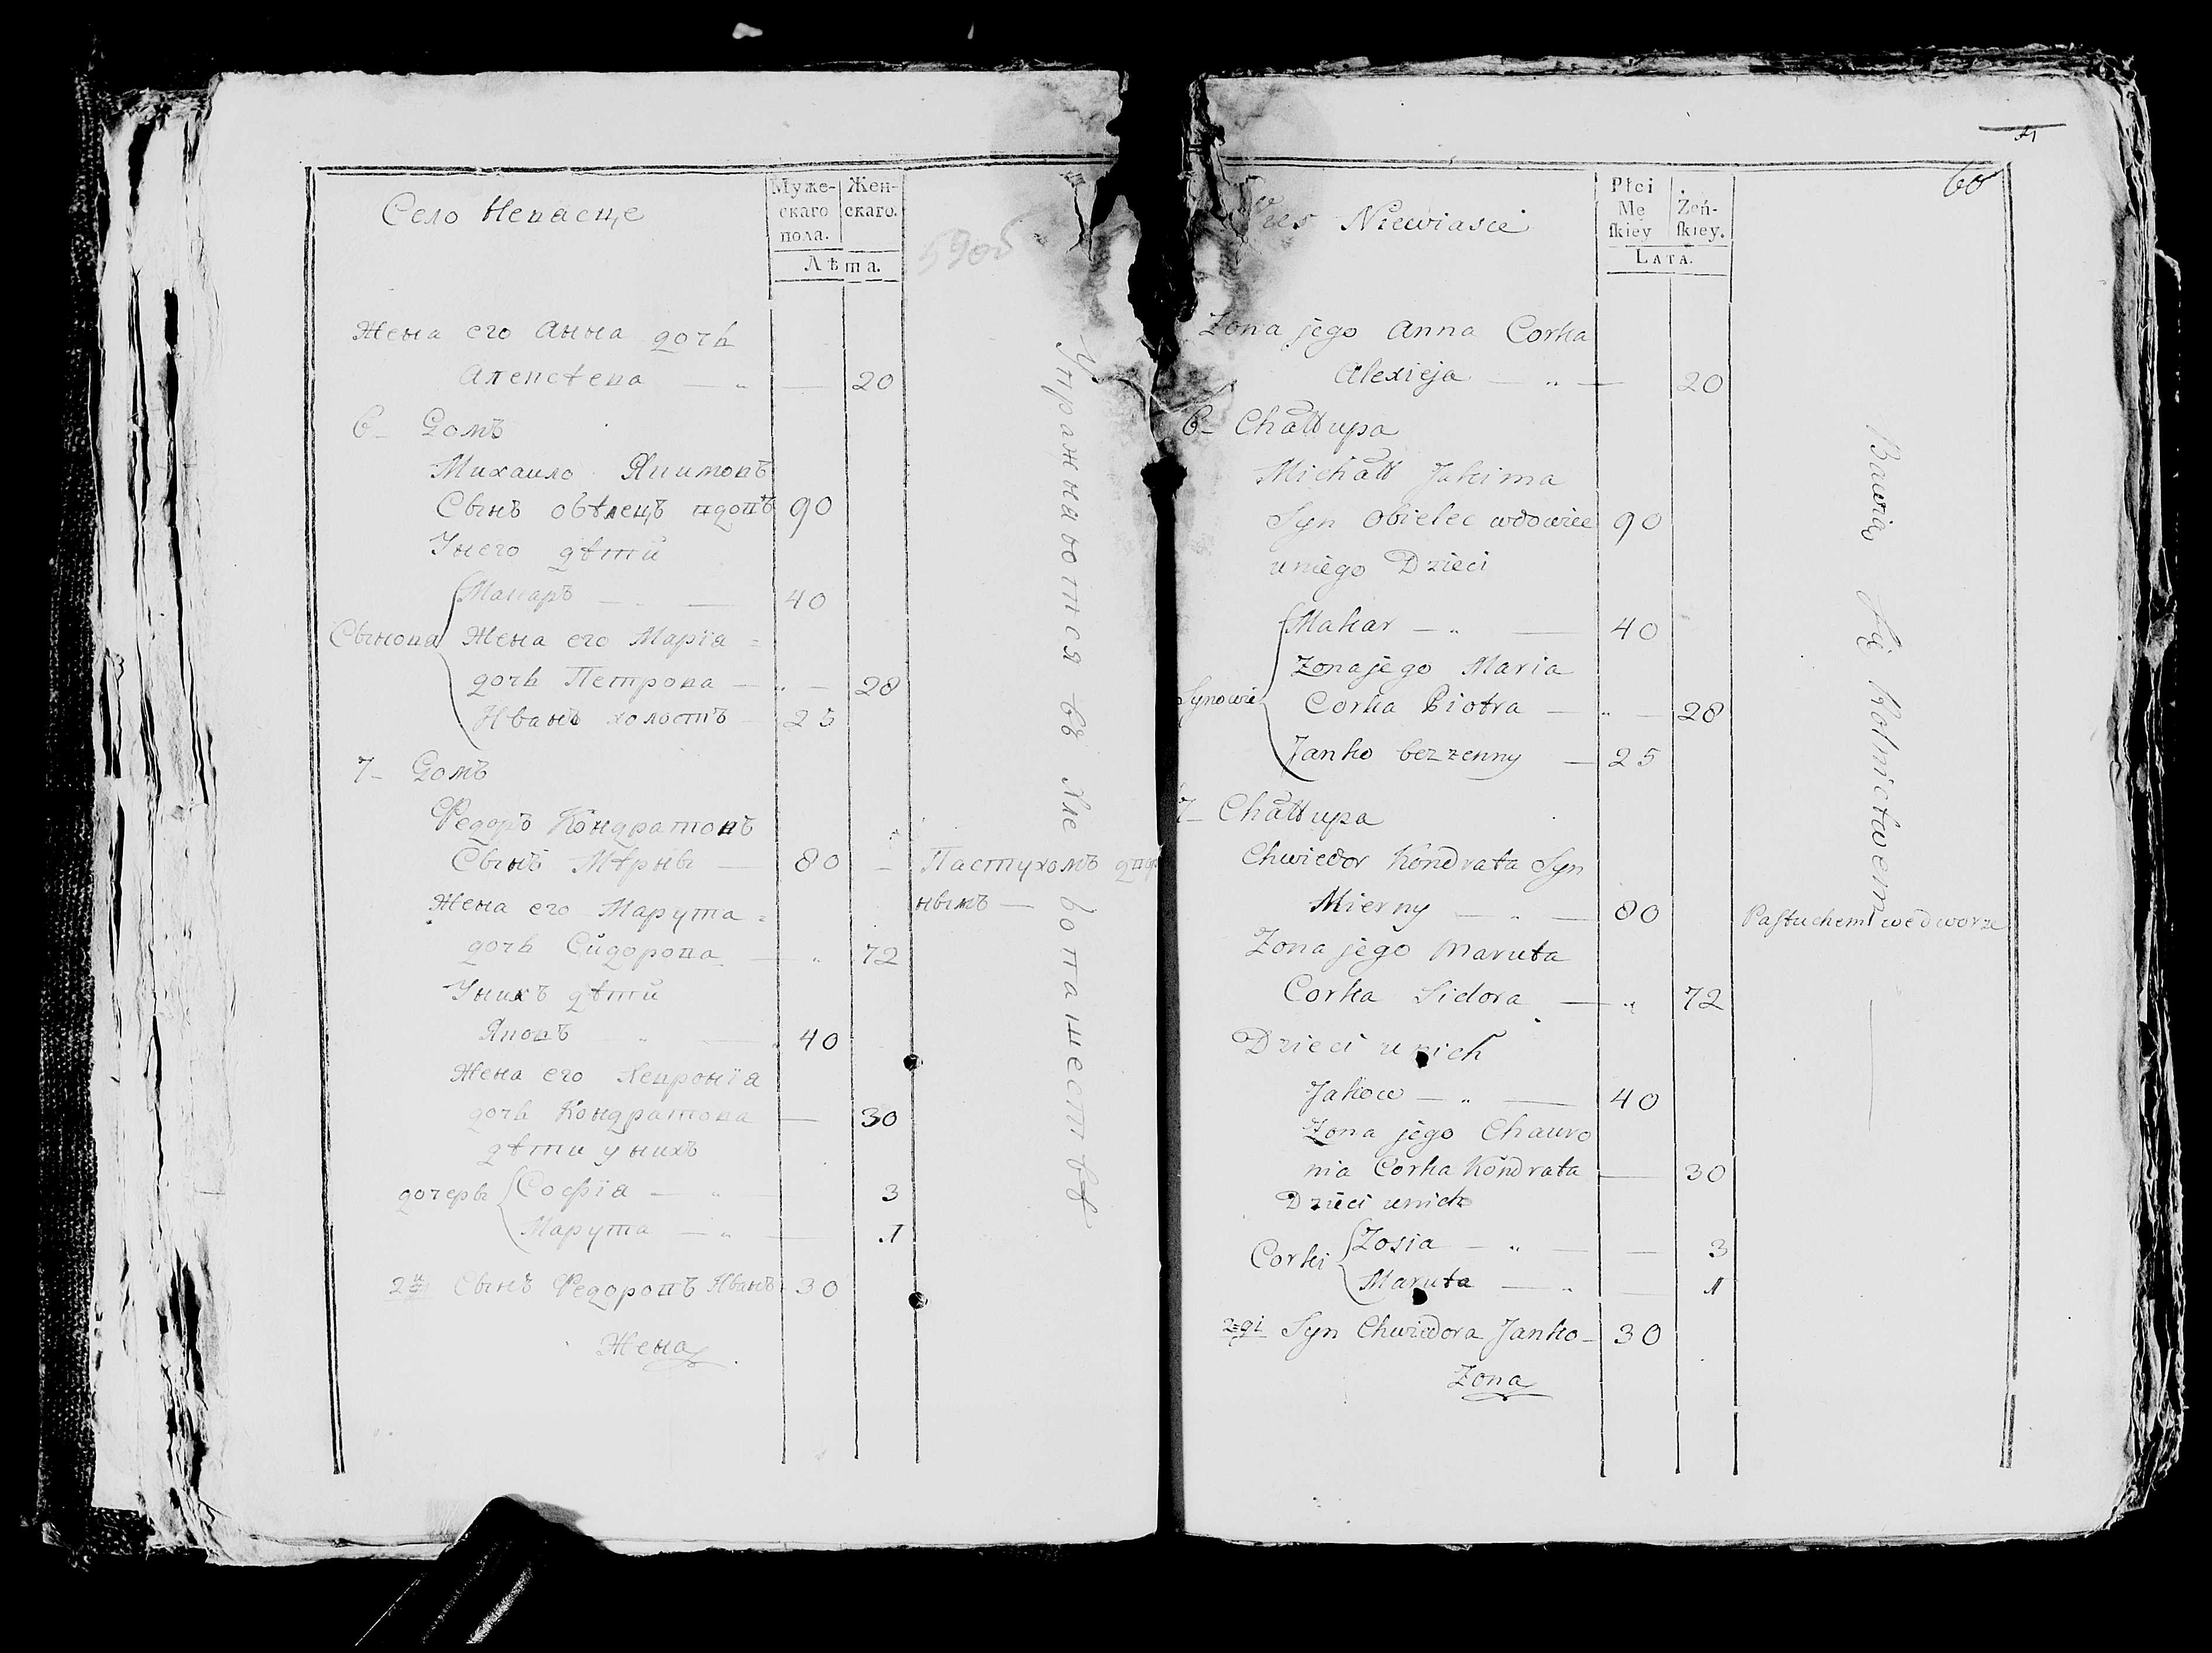 Село Невасце
Муже-
скаго
пола.
Жен-
скаго.
Лѣта.
590б
Жена его Анна дочь
Алексѣева — „ — 20
6 — Домъ
Михаило Якимовъ
Сынъ обѣлецъ вдовъ 90
Унего дѣти
Макаръ — 40
Сынова Жена его Марїа =
дочь Петрова — „ — 28
Иванъ холостъ — 25
7 — Домъ
Федоръ Кондратовъ
Сынъ Мѣрны — 80 —
Пастухомъ
нымъ —
Жена его Марута =
дочь Сидорова — „ 72
Унихъ дѣти
Яковъ „ — 40
Жена его Хевронїа
дочь Кондратова — 30
дѣти у нихъ
дочерь Софїа — „ 3
Марута — „ — 1
2й Сынъ Федоровъ Иванъ 30
Жена
Упражнаются въ Хле бопашествѣ
60
Wies Niewiasie
Płci
Mę
skiey
Żeń-
skiey.
LATA.
Zona jego Anna Corka
Alexieja — „ — 20
6 — Chałłupa
Michałł Jakima
Syn Obielec wdowiec 90
uniego Dzieci
Makar — „ — 40
Zona jego Maria
Synowie Corka Piotra — „ — 28
Janko bezzenny — 25
7 — Chałłupa
Chwiedor Kondrata Syn
Mierny — „ — 80
Pastuchem we dworze
Zona jego Maruta
Corka Sidora — „ 72
Dzieci unich
Jakow — „ — 40
Zona jego Chauro
nia Corka Kondrata — 30
Dzieci unich
Corki Zosia — „ — — 3
Maruta — „ — 1
2-gi Syn Chwiedora Janko — 30
Zona
Bawią się Rolnictwem